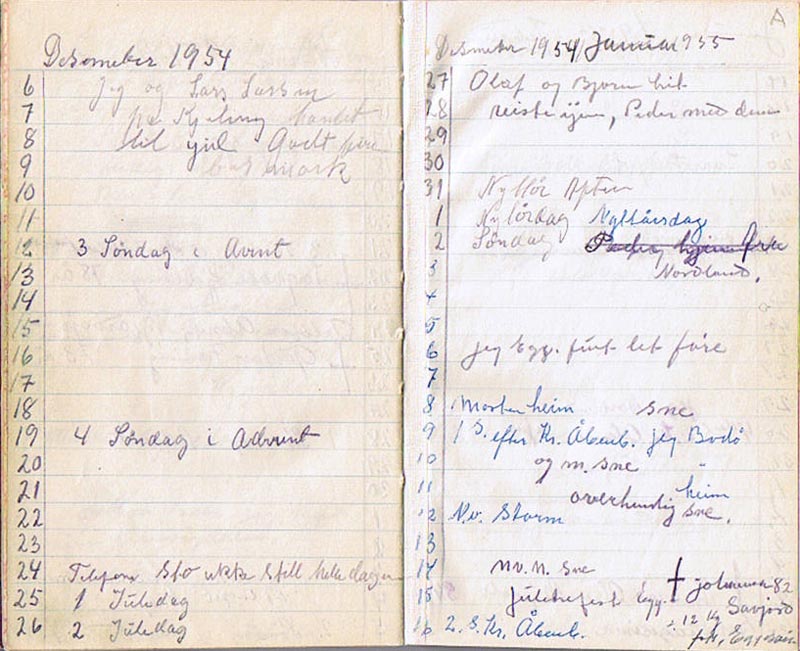 Desember 1954
6 Jeg og Lars Larsen
7 på Kjelling handet
8 til jul Godt føre
9 bar mark
10
11
12 3 Søndag i Avent
13
14
15
16
17
18
19 4 Søndag i Advent
20
21
22
23
24 Telefone sto ikke still hele dagen
25 1 Juledag
26 2 Juledag
A
Desember 1954 Januar 1955
27 Olaf og Bjørn hit
28 reiste igjen, Peder med dem
29
30
31 Nyttår Aften
1 Nyårdag Nyttårsdag
2 Søndag Peder hjem fra
3 Nordland.
4
5
6 jeg Egg. fint let føre
7
8 Morten heim sne
9 1 S. efter Kr. Åbenb. jeg Bodø
10 og m. sne "
11 heim
overhendig
12 N.v. Storm sne.
13
14 nv. n. sne
15 Juletrefest Egg. † 82
Savjord
16 2. S. Kr. Åbenb. 12 kg